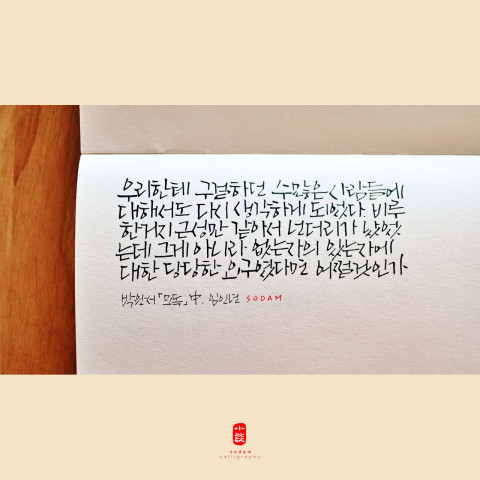 우리한테 구걸하던 수많은 사람들에
대해서도 다시 생각하게 되었다. 비루
한거지 근성만 같아서 넌더리가 났었
는데 그게 아니라 없는자의 있는자에
대한 당당한 요구였다면 어쩔것인가
박완서「모독」中. 임인년 SODAM
小
sodam
calligraphy